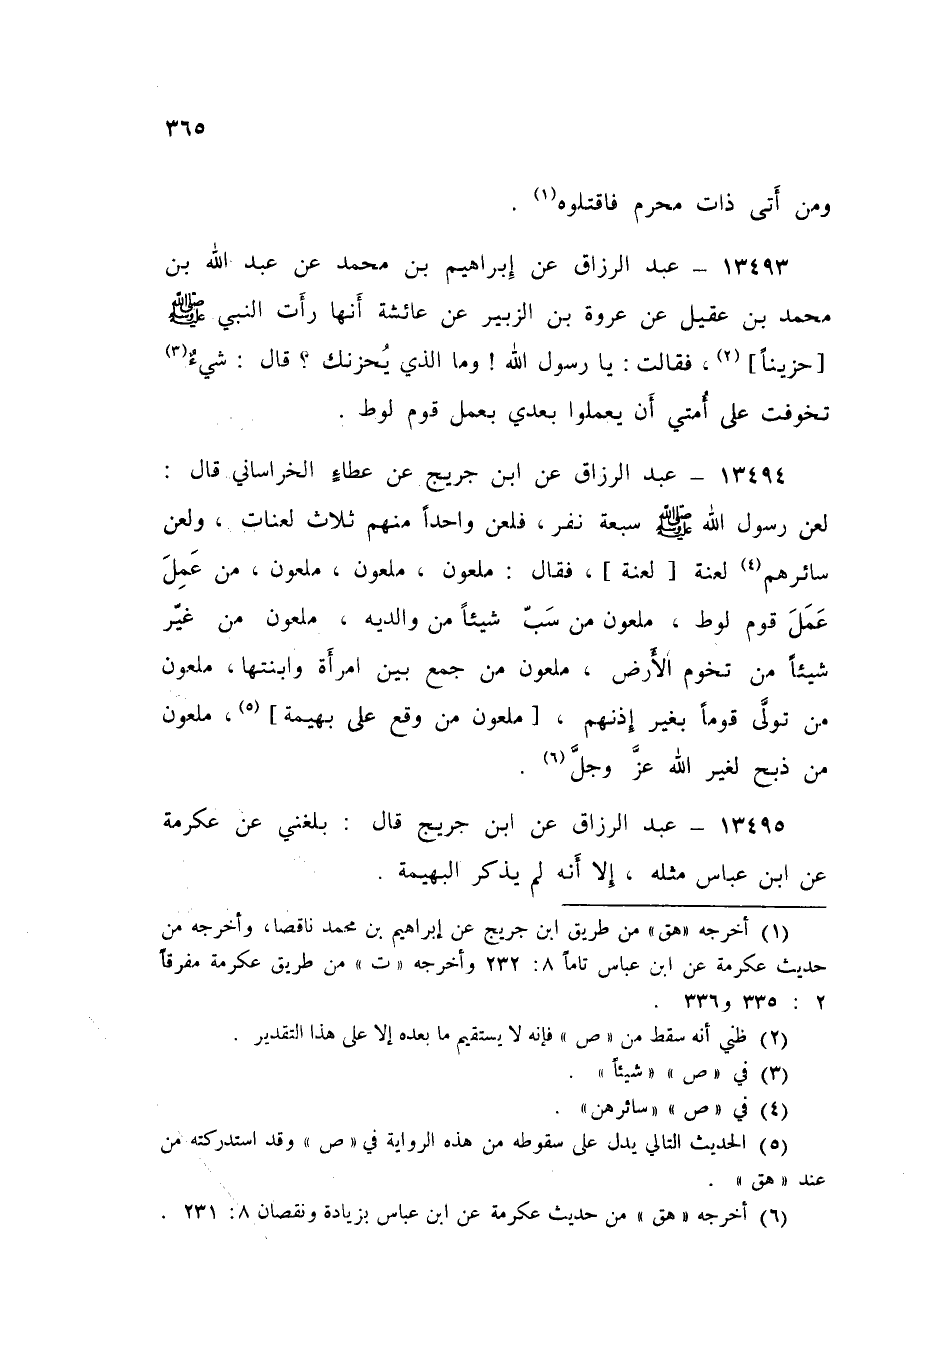 ٣٦٥
ومن أَتى ذات محرم فاقتلوه(١) .
١٣٤٩٣ – عبد الرزاق عن إبراهيم بن محمد عن عبد الله بن
محمد بن عقيل عن عروة بن الزبير عن عائشة أَنها رأَت النبي ﷺ
[حزيناً] (٢) ، فقالت : يا رسول الله ! وما الذي يُحزنك ؟ قال : شيءٌ(٣)
تخوفت على أُمتي أَن يعملوا بعدي بعمل قوم لوط .
١٣٤٩٤ – عبد الرزاق عن ابن جريج عن عطاءٍ الخراساني قال :
لعن رسول الله ﷺ سبعة نفر ، فلعن واحداً منهم ثلاث لعنات ، ولعن
سائرهم(٤) لعنة [ لعنة ] ، فقال : ملعون ، ملعون ، ملعون ، من عَمِلَ
عَمَلَ قوم لوط ، ملعون من سَبّ شيئاً من والديه ، ملعون من غيّر
شيئاً من تخوم الأَرض ، ملعون من جمع بين امرأَة وابنتها ، ملعون
من تولَّى قوماً بغير إذنهم ، [ ملعون من وقع على بهيمة ] (٥) ، ملعون
من ذبح لغير الله عزَّ وجلَّ(٦) .
١٣٤٩٥ – عبد الرزاق عن ابن جريج قال : بلغني عن عكرمة
عن ابن عباس مثله ، إلا أَنه لم يذكر البهيمة .
(١) أخرجه «هق» من طريق ابن جريج عن إبراهيم بن محمد ناقصا، وأخرجه من
حديث عكرمة عن ابن عباس تاماً ٨: ٢٣٢ وأخرجه «ت » من طريق عكرمة مفرقاً
٢ : ٣٣٥ و٣٣٦ .
(٢) ظني أنه سقط من « ص » فإنه لا يستقيم ما بعده إلا على هذا التقدير .
(٣) في « ص » «شيئاً » .
(٤) في « ص » «سائرهن» .
(٥) الحديث التالي يدل على سقوطه من هذه الرواية في« ص » وقد استدركته من
عند « هق » .
(٦) أخرجه « هق » من حديث عكرمة عن ابن عباس بزيادة ونقصان ٨: ٢٣١ .